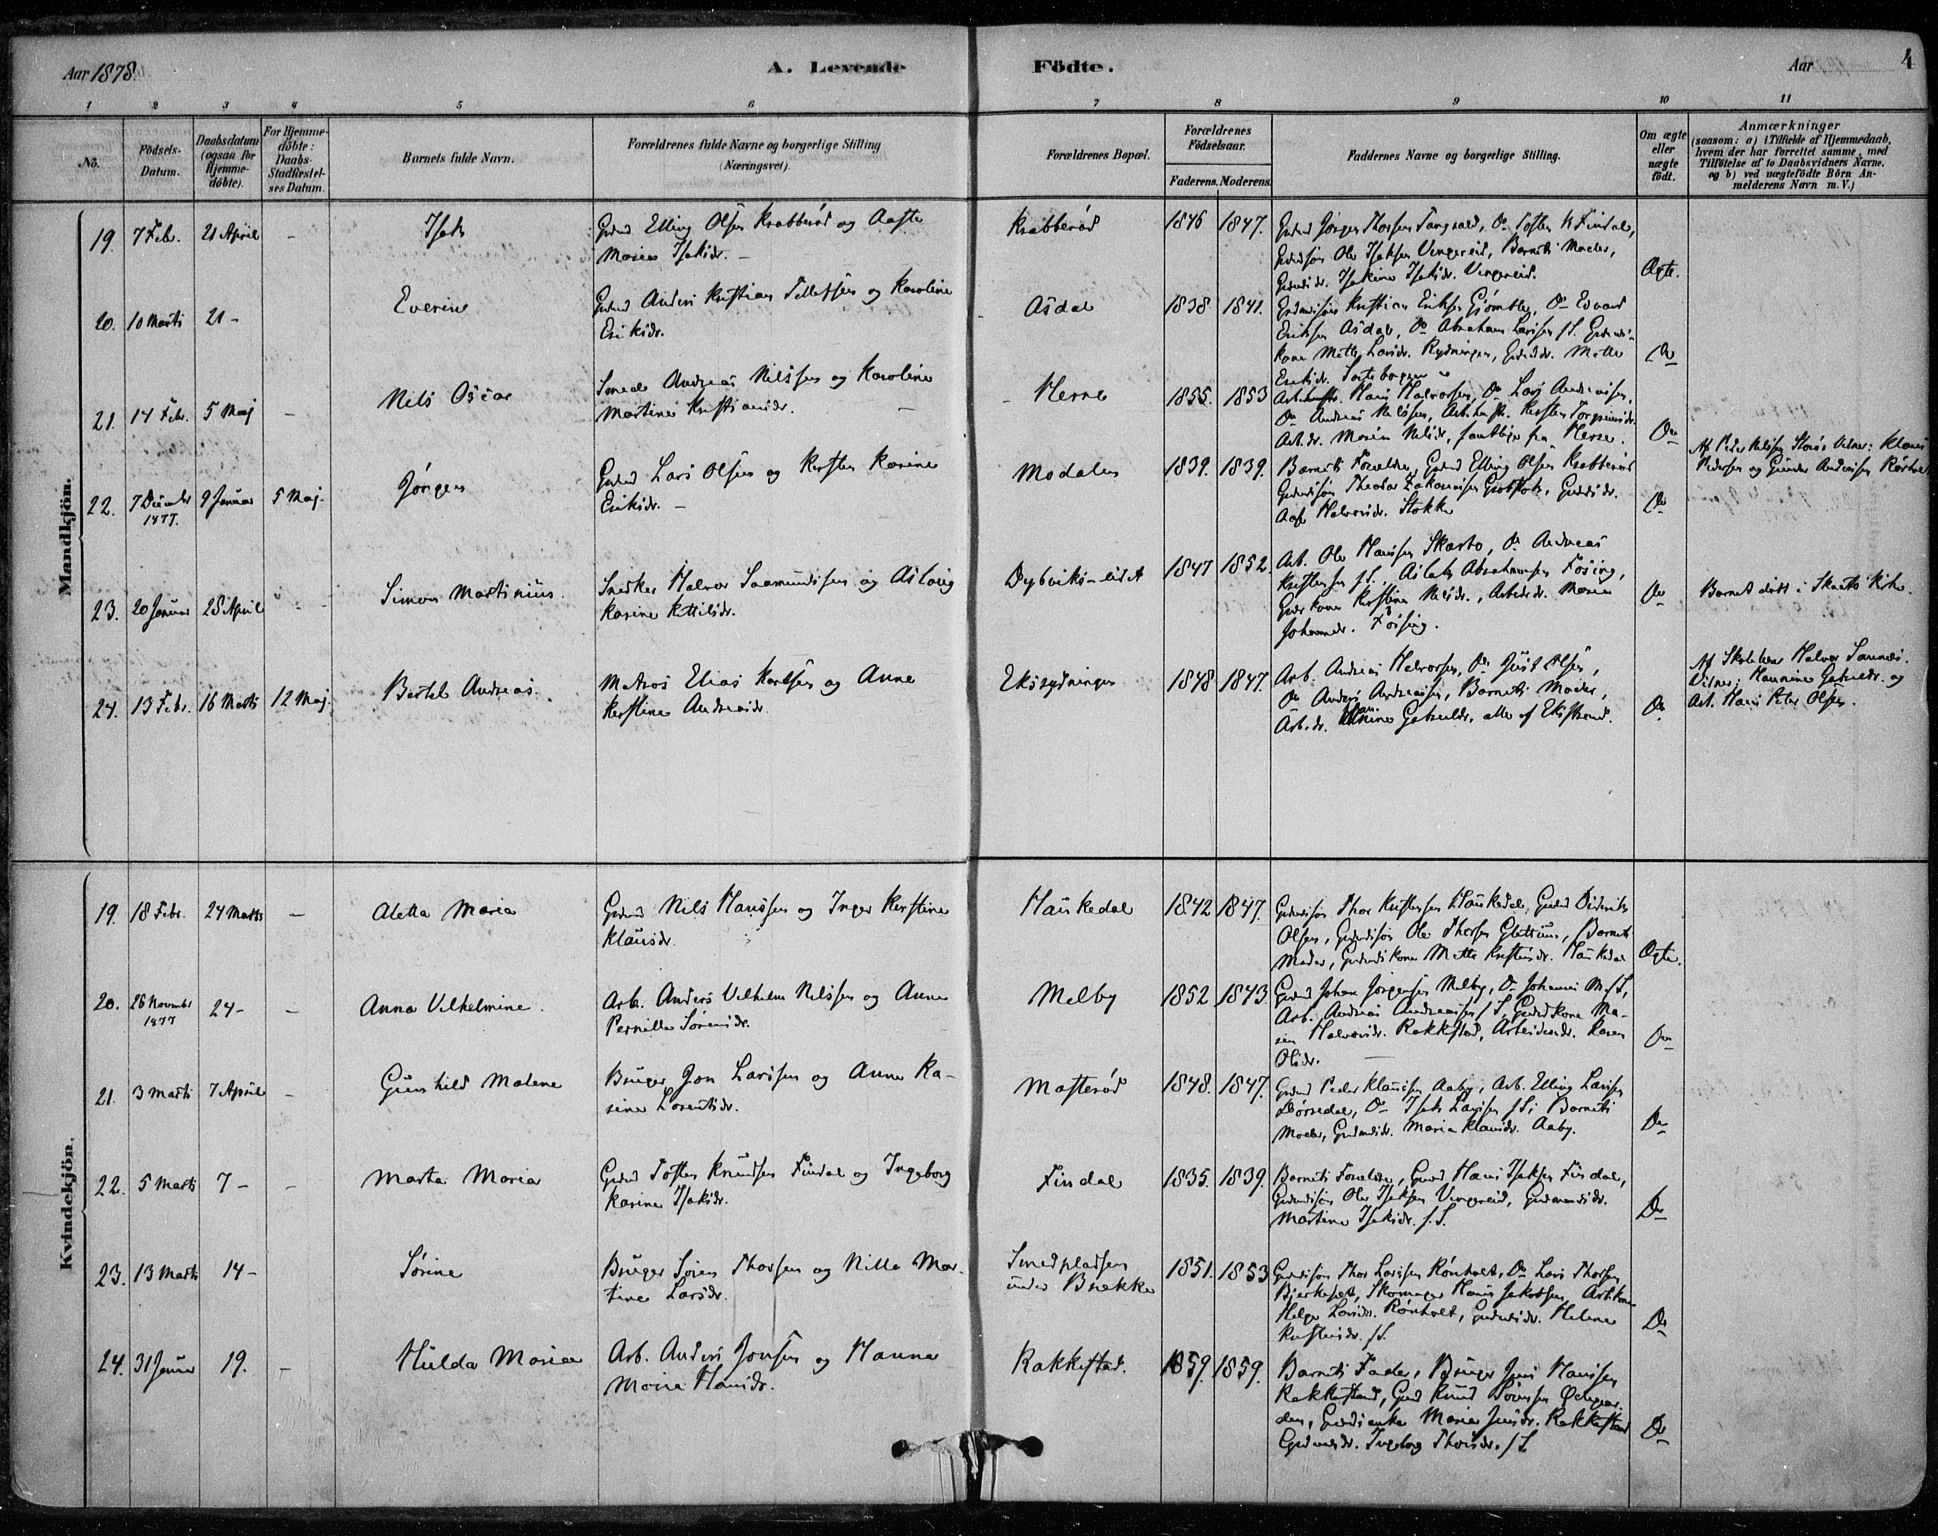 Aar 1878.
A. Levende Födte.
Aar
4
1 2 3 4 5 6 7 8 9 10 11
No.
Födsels-Datum.
Daabsdatum (ogsaa for Hjemme-döbte).
For Hjemme-döbte: Daabs-Stadfæstel-ses Datum.
Barnets fulde Navn.
Forældrenes fulde Navne og borgerlige Stilling (Næringsvei).
Forældrenes Bopæl.
Forældrenes Födselsaar.
Faderens. Moderens.
Faddernes Navne og borgerlige Stilling.
Om ægte eller uægte födt.
Anmærkninger
(saasom: a) i Tilfælde af Hjemmedaab,
hvem der har forrettet samme, med
Tilföielse af to Daabsvidners Navne,
og b) ved uægtefödte Börn An-
melderens Navn m. V.)
Mandkjön.
19. 7 Febr. 21 April - Isak
Gdmd Elling Olsen Krabberød og Aaste
Maria Isaksdr. -
Krabberød 1846 1847.
Gdmd Jørgen Thorsen Tangvald, Do Tosten K Findal,
Gdmdsøn Ole Isaksen Vingereid, Barnets Moder,
Gdmdsdr. Isakine Isaksdr. Vingereid.
Ægte.
20. 10 Marts 21 - Everine
Gdmd Anders Kristian Tellefsen og Karoline
Eriksdr.
Asdal 1838 1841.
Gdmdsøn Kristian Eriksen Gjømble, Do Edvard
Eriksen Asdal, Do Abraham Larsen s.S. Gdmds-
kone Mette Larsdr. Rydningen, Gdmdsdr. Mette
Eriksdr.
Do
21. 14 Febr. 5 Maj - Nils Oscar
Smed Andreas Nilssen og Karoline
Martine Kristiansdr.
Herre 1855. 1853
Hans Halvorsen, Do Lars Andersen,
Do Andreas Nilssen, Kirsten Torgrimsdr.
Arb.dr. Maren Nilsdr, samtlige fra Herre.
Do
22. 7 Decembr 1877. 9 Januar 5 Maj. Jørgen
Gdmd Lars Olsen og Kirsten Karine
Eriksdr. -
Modalen 1839. 1839.
Barnets Forældre, Gdmd Elling Olsen Krabberød
Gdmdsøn Theodor Zakariasen Grobstok, Gdmdsdr.
Aase Halvorsdr. Stokke
Do
Af Peder Nilssen Vidner: Klaus
Pedersen og Gunder Andersen Rørholt
23. 20 Januar 28 April - Simon Martinius.
Snedker Halvor Saamundsen og Aslaug
Karine Kittilsdr.
Dybviks-eidet 1847 1852.
Arb. Ole Hansen Skarbo, Do Andreas
Kristensen s.S., Aslak Abrahamsen Fosing,
Gdmdkone Kirstine Nilsdr., Arbeidsdr. Maren
Johannesdr. Fosing.
Do
Barnet døbt i Skaatø Kirke.
24. 13 Febr. 16 Marts 12 Maj. Bertel Andreas.
Matros Elias Karlsen og Anne
Kirstine Andreasdr.
Eksrydningen 1848 1847.
Arb. Andreas Halvorsen, Do Just Olsen,
Do Anders Andreassen, Barnets Moder,
Arb.dr. Hannine alle af Ekstrand.
Do
Af Skolelærer Halvor Sannæs.
Vidner: Hannine og
Arb. Hans Peter Olsen.
Kvindekjön.
19. 18 Febr. 24 Marts - Aletta Maria
Gdmd Nils Hansen og Inger Kirstine
Klausdr.
Haukedal 1842 1847.
Gdmdsøn Thor Kristensen Haukedal, Gdmd Diderik
Olsen, Gdmdsøn Ole Thorsen Glittum, Barnets
Moder, Gdmdskone Mette Kristensdr. Haukedal
Ægte.
20. 26 Novembr 1877 24 - - Anna Vilhelmine.
Arb. Anders Vilhelm Nilssen og Anne
Pernille Sørensdr.
Melby 1852 1843.
Gdmd Johan Jørgensen Melby, Do Johannes M. s.S,
Arb. Andreas Andreassen s.S, Gdmdkone Ma-
ren Halvorsdr. Rakkestad, Arbeidsmdsdr. Karen
Olsdr.
Do
21. 3 Marts 7 April - Gunhild Malene
Bruger Jon Larsen og Anne Ka-
rine Lorentsdr.
Masterød 1848. 1847.
Gdmd Peder Klausen Aaby, Arb. Elling Larsen
Dørsdal, Do Isak Larsen s.S; Barnets
Moder, Gdmdsdr. Maria Klausdr. Aaby.
Do
22. 5 Marts 7 - - Marta Maria
Gdmd Tosten Knudsen Findal og Ingeborg
Karine Isaksdr.
Findal 1835. 1839.
Barnets Forældre, Gdmd Hans Isaksen Findal,
Gdmdsøn Ole Isaksen Vingereid, Gdmandsdr.
Martine Isaksdr. s.S.
Do
23. 13 Marts 14 - Sørine
Bruger Søren Thorsen og Nille Mar-
tine Larsdr.
Smedpladsen
under Brække 1851. 1853
Gdmdsøn Thor Larsen Rønholt, Do Lars Thorsen
Bjerkeset, Skomager Hans Jakobsen, Arb.kone
Helge Larsdr. Rønholt, Gdmdsdr. Helene
Kristensdr. s.S.
Do
24. 31 Januar 19. - Hulda Maria
Arb. Anders Jonsen og Hanna
Maria Hansdr.
Rakkestad. 1859. 1859.
Barnets Fader, Bruger Jens Hansen
Rakkestad, Gdmd Knud Sørensen Ødegaar-
den, Gdmdsenke Maria Jensdr. Rakkestad
Gdmdsdr. Ingeborg Thorsdr. s.S.
Do